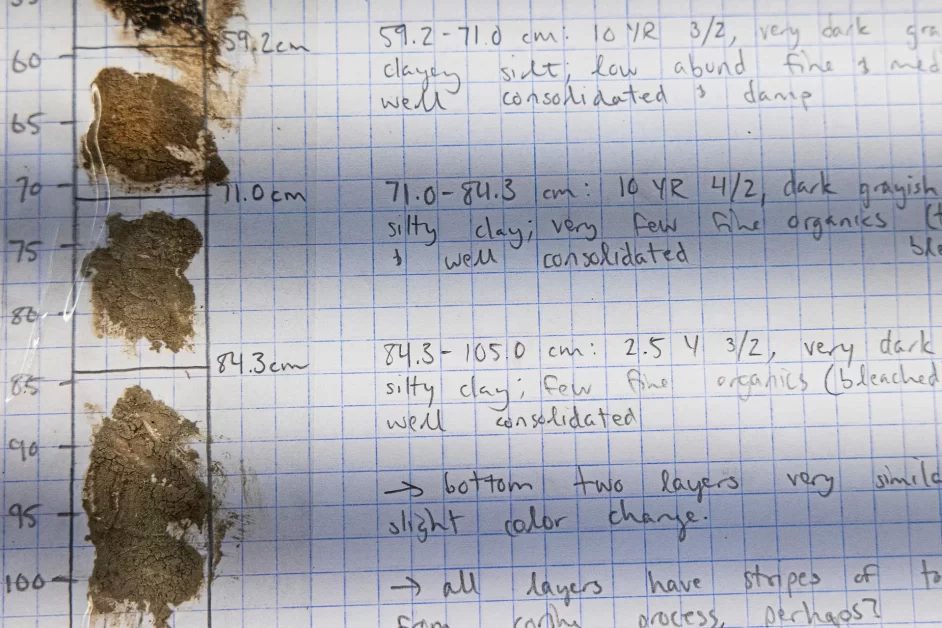 59.2cm
60
65
70
71.0cm
75
80
84.3cm
85
90
95
100
59.2-71.0 cm: 10 YR 3/2, very dark gra
clayey silt; low abund fine & med
well consolidated & damp
71.0-84.3 cm: 10 YR 4/2, dark grayish
silty clay; very few fine organics (t
& well consolidated ble
84.3-105.0 cm: 2.5 Y 3/2, very dark
silty clay; few fine organics (bleached
well consolidated
→ bottom two layers very simila
slight color change.
→ all layers have stripes of to
from coring process, perhaps?